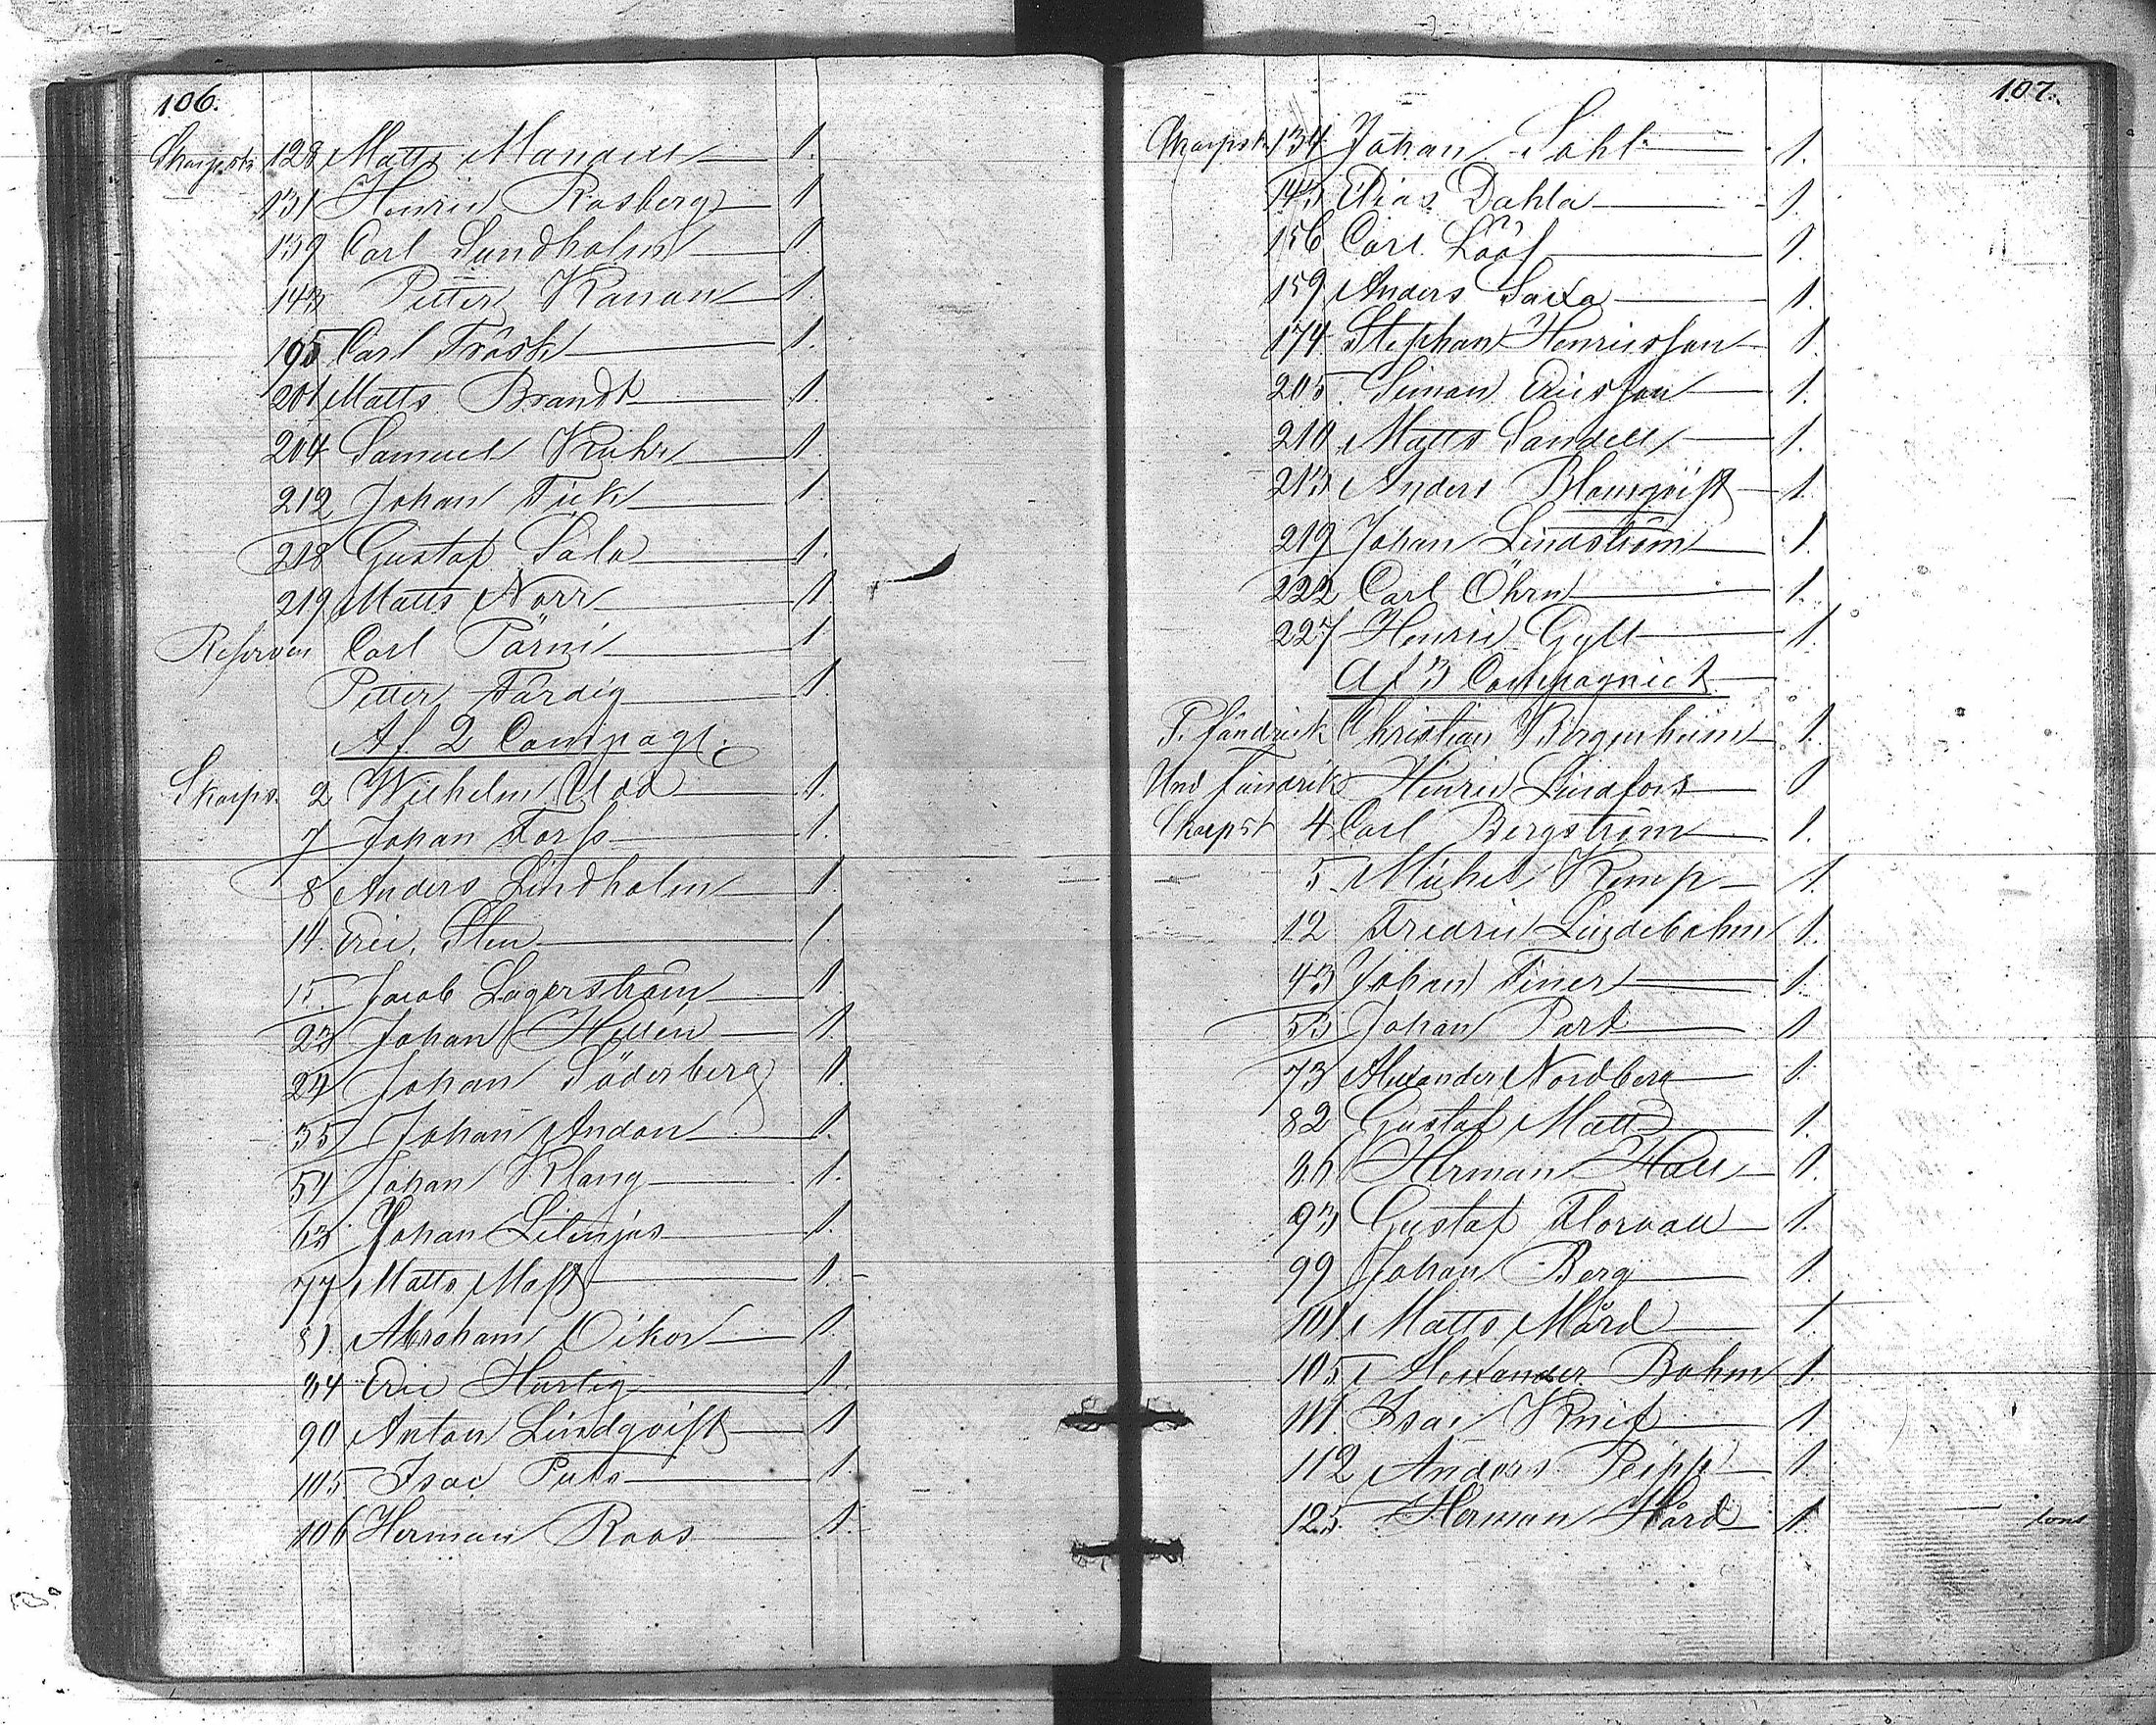 106.
Skarpsk. 128 Matts Mandell 1.
131 Henric Rosberg 1
139 Carl Lundholm 1.
143 Petter Kanon 1.
195 Carl Trösk 1.
201 Matts Brandt 1.
204 Samuel Kuhr 1.
212 Johan Tick 1.
218 Gustaf Sälo 1.
219 Matts Norr 1.
Reserven Carl Pärni 1.
Petter Färdig 1
Af 2 Compagt.
Skarps. 2 Wilhelm Udd 1.
7 Johan Forss 1.
8 Anders Lindholm 1.
14. Eric Sten 1.
15 Jacob Lagerström 1.
23 Johan Hellén 1.
24 Johan Söderberg 1.
35 Johan Andan 1.
54 Johan Klang 1.
63 Johan 1.
77 Matts Mast 1.
81. Abraham Oikor 1.
84 Eric Hurtig 1.
90 Anton Lindqvist 1
105 Isac Puts 1.
106 Herman Roos 1.
107.
Skarpsk. 134 Johan Sohl 1.
143 Elias Dahla 1.
156 Carl Lööf 1.
159 Anders Saxa 1.
174 Stephan Henricsson 1.
205 Simon Ericsson 1.
210 Matts Sandell 1.
213 Anders Blomqvist 1.
219 Johan Lindström 1.
222 Carl Öhrn 1.
227 Henric Gyllt 1
Af 3 Compagniet
P. fändrick Christian Bergenheim 1.
Und fändrik Henric Lindfors 1
Skarpsk 4 Carl Bergström 1.
5. Michel Kemp 1.
12 Fredric Lindebohm 1.
43 Johan Finer 1.
53 Johan Pard 1.
73 Alexander Nordberg 1.
82 Gustaf Matt 1.
86 Herman Hall 1.
93 Gustaf Florvall 1.
99 Johan Berg 1.
101 Matts Mård 1
105 Alexander Bohm 1.
111 Isac Knif 1.
112 Anders Peipp 1
125 Herman Hård 1.